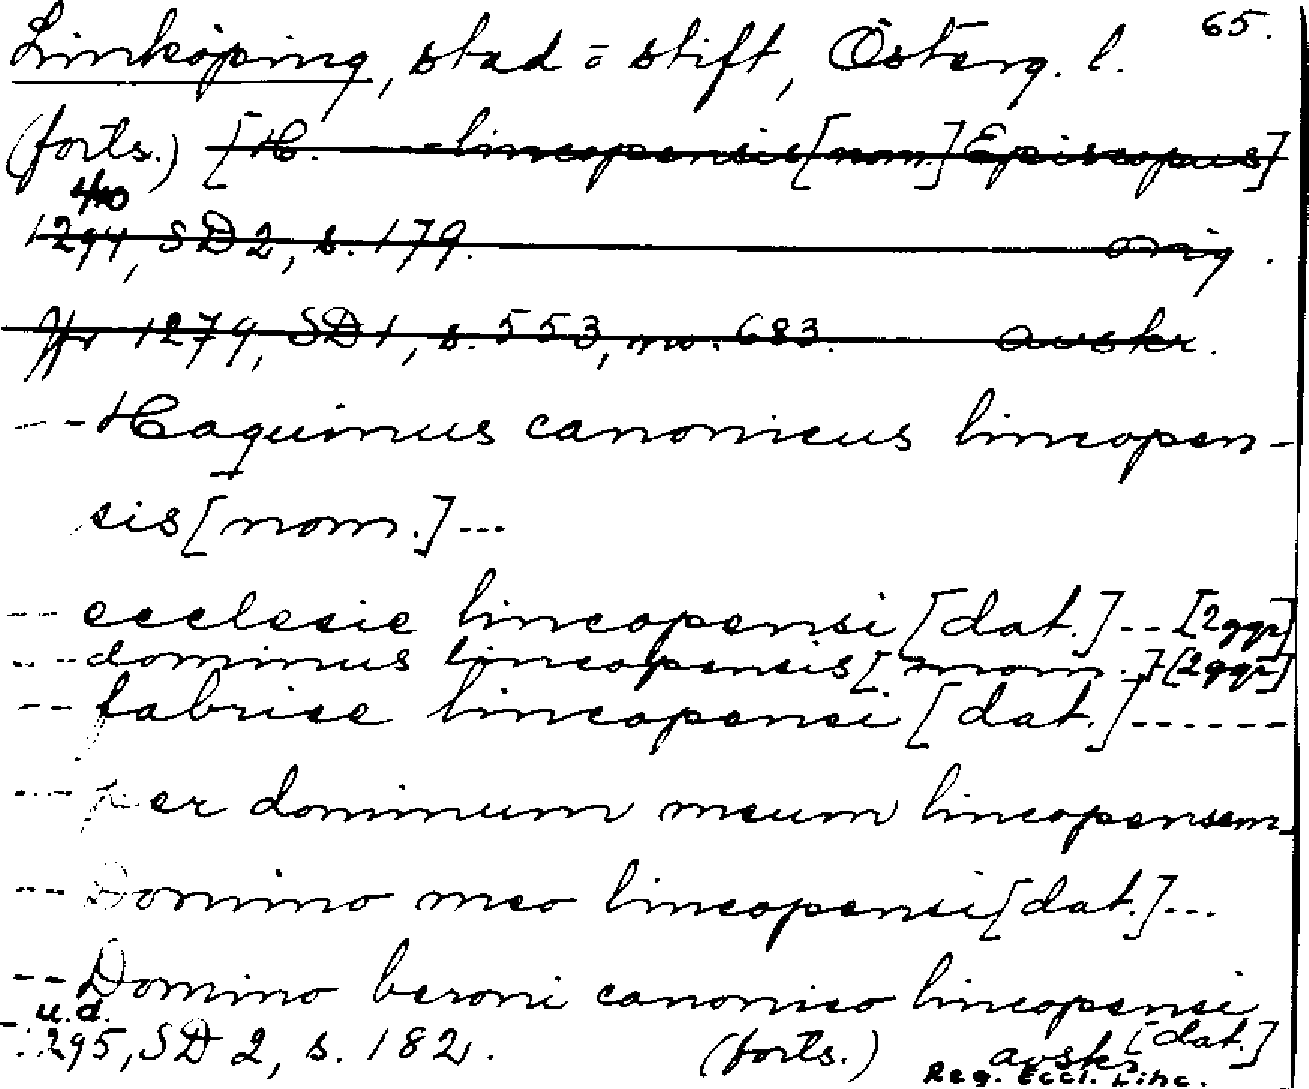 65.
Linköping, stad = stift, Österg. l.
(forts.) [H. --- lincopensis [nom.] Episcopus]
4/10
1294, SD 2, s. 179. orig.
Jfr 1279, SD 1, s. 553, nr. 683. avskr.
-- Haquinus canonicus lincopen-
sis [nom.] ---
-- ecclesie lincopensi [dat.] -- [2ggr]
-- dominus lincopensis [nom.] [2ggr]
-- fabrice lincopensi [dat.] ------
--- per dominum meum lincopensem
--- Domino meo lincopensi [dat.] ---
-- Domino beroni canonico lincopensi
u.d. [dat.]
1295, SD 2, s. 182. (forts.) avskr.
Reg. Eccl. Linc.